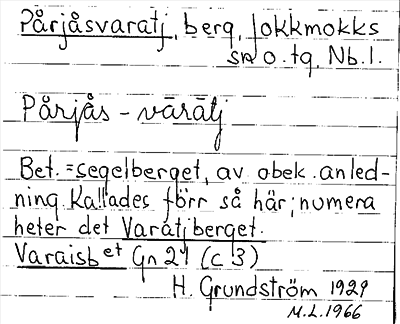 Pårjåsvaratj, berg, Jokkmokks
sn o. tg, Nb. l.
Pårjås - vārātj
Bet. = segelberget, av obek. anled-
ning. Kallades förr så här; numera
heter det Varatjberget.
Varaisbet Gn 21 (c 3)
H. Grundström 1929
M.L. 1966